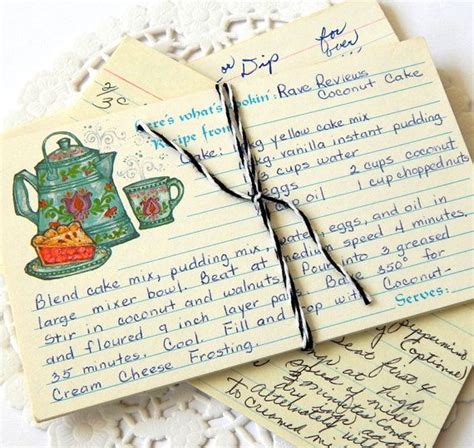 or Dip for
ever
2/3 C
Here's what's cookin': Rave Reviews
Coconut Cake
Recipe from
Cake: pkg yellow cake mix
pkg. vanilla instant pudding
cups water
eggs 2 cups coconut
cup oil 1 cup chopped nuts
Blend cake mix, pudding mix, water, eggs, and oil in
large mixer bowl. Beat at medium speed 4 minutes.
Stir in coconut and walnuts. Pour into 3 greased
and floured 9 inch layer pans. Bake 350° for
35 minutes. Cool. Fill and top with Coconut-
Cream Cheese Frosting.
Serves:
(optional)
Beat first 4
minutes
Alternately
to creamed